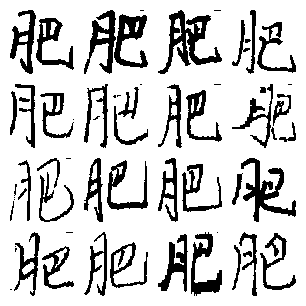 肥肥肥肥
肥肥肥肥
肥肥肥肥
肥肥肥肥